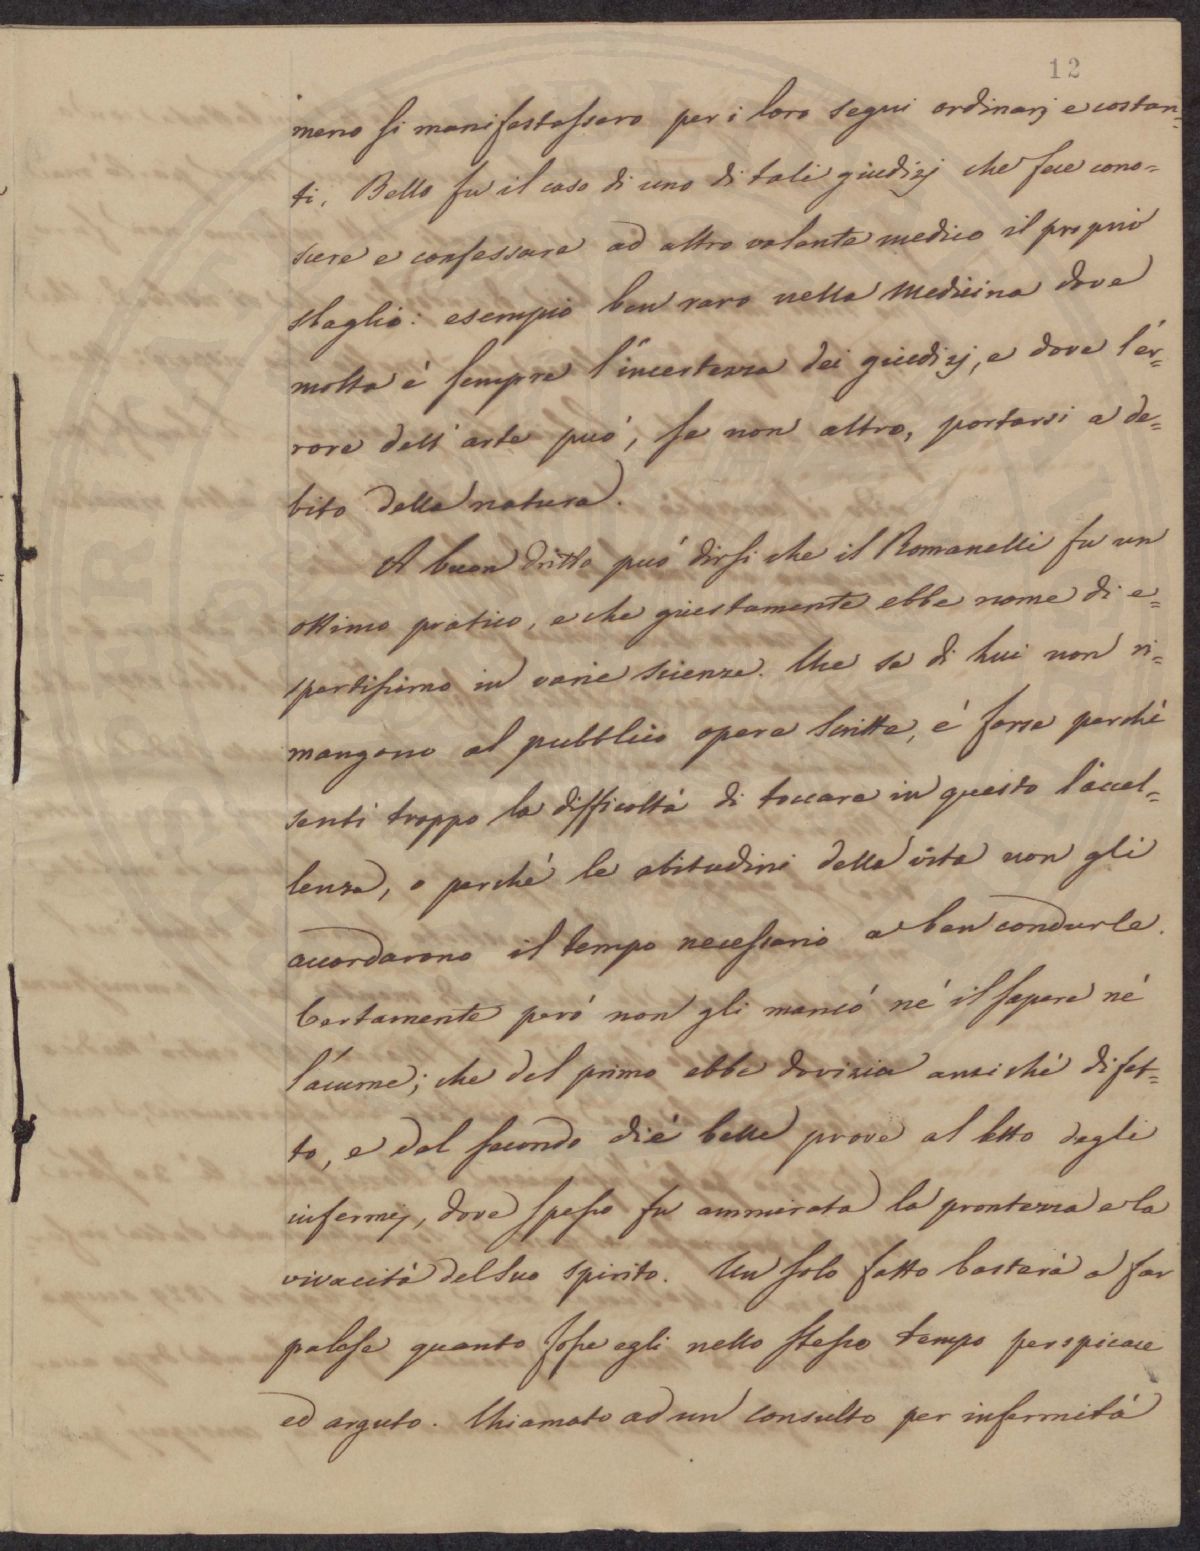 12
meno si manifestassero per i loro segni ordinarj e costan=
ti. Bello fu il caso di uno di tali giudizj che fece cono=
scere e confessare ad altro valente medico il proprio
sbaglio: esempio ben raro nella Medicina dove
molta é sempre l'incertezza dei giudizj, e dove l'er=
rore dell'arte puó, se non altro, portarsi a de=
bito della natura.
A buon dritto puó dirsi che il Romanelli fu un
ottimo pratico, e che giustamente ebbe nome di e=
spertissimo in varie scienze. Che se di lui non ri=
mangono al pubblico opere scritte, é forse perché
sentì troppo la difficoltá di toccare in questo l'accel=
lenza, o perché le abitudini della vita non gli
accordarono il tempo necessario a ben condurle.
Certamente peró non gli mancó né il sapere né
l'acume; che del primo ebbe dovizia anziché difet=
to, e del secondo dié belle prove al letto degli
infermj, dove spesso fu ammirata la prontezza e la
vivacitá del suo spirito. Un solo fatto basterá a far
palese quanto fosse egli nello stesso tempo perspicace
ed arguto. Chiamato ad un consulto per infermitá